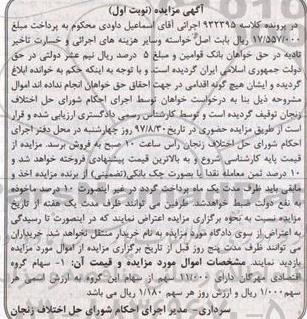 آگهی مزایده (نوبت اول)
در پرونده کلاسه ۹۲۲۳۹۵ اجرائی آقای اسماعیل داودی محکوم به پرداخت مبلغ
۱۷/۵۵۷/۰۰۰ ریال بابت اصل خواسته وسایر هزینه های اجرائی و خسارت تاخیر
تادیه در حق خواهان بانک قوامین و مبلغ ۵ درصد ریال نیم عشر دولتی در حق
دولت جمهوری اسلامی ایران گردیده است و با توجه به اینکه حکم به خوانده ابلاغ
گردیده و ایشان هیچ گونه اقدامی در جهت احقاق حق خواهان انجام نداده اند اموال
مشروحه ذیل بنا به درخواست خواهان توسط اجرای احکام شورای حل اختلاف
زنجان توقیف گردیده است و توسط کارشناس رسمی دادگستری ارزیابی شده و قرار
است از طریق مزایده حضوری در تاریخ ۹۷/۸/۳۰ روز چهارشنبه در محل دفتر اجرای
احکام شورای حل اختلاف زنجان راس ساعت ۱۰ صبح به فروش برسد. مزایده از
قیمت پایه کارشناسی شروع و به بالاترین قیمت پیشنهادی فروخته خواهد شد و
۱۰ درصد ثمن معامله نقدا یا بصورت چک بانکی(تضمینی) از برنده مزایده اخذ و
مابقی باید ظرف مدت یک ماه پرداخت گردد در غیر اینصورت ۱۰ درصد ماخوذه
به نفع دولت ضبط خواهدشد. طرفین می توانند ظرف مدت یک هفته از تاریخ
مزایده نسبت به نحوه برگزاری مزایده اعتراض نمایند که در اینصورت تا رسیدگی
به اعتراض از سوی دادگاه مورد مزایده به نام خریدار منتقل نخواهد شد. خریداران
می توانند ظرف مدت پنج روز قبل از تاریخ برگزاری مزایده از اموال مورد مزایده
بازدید نمایند. مشخصات اموال مورد مزایده و قیمت آن: ۱- سهام گروه
اقتصادی مهرگان دارای ۱۱/۰۰۰ سهم از سهام این گروه به ارزش اسمی هر
سهم۱/۰۰۰ ریال و ارزش روز هر سهم ۱/۱۸۰ ریال می باشد
سرداری- مدیر اجرای احکام شورای حل اختلاف زنجان